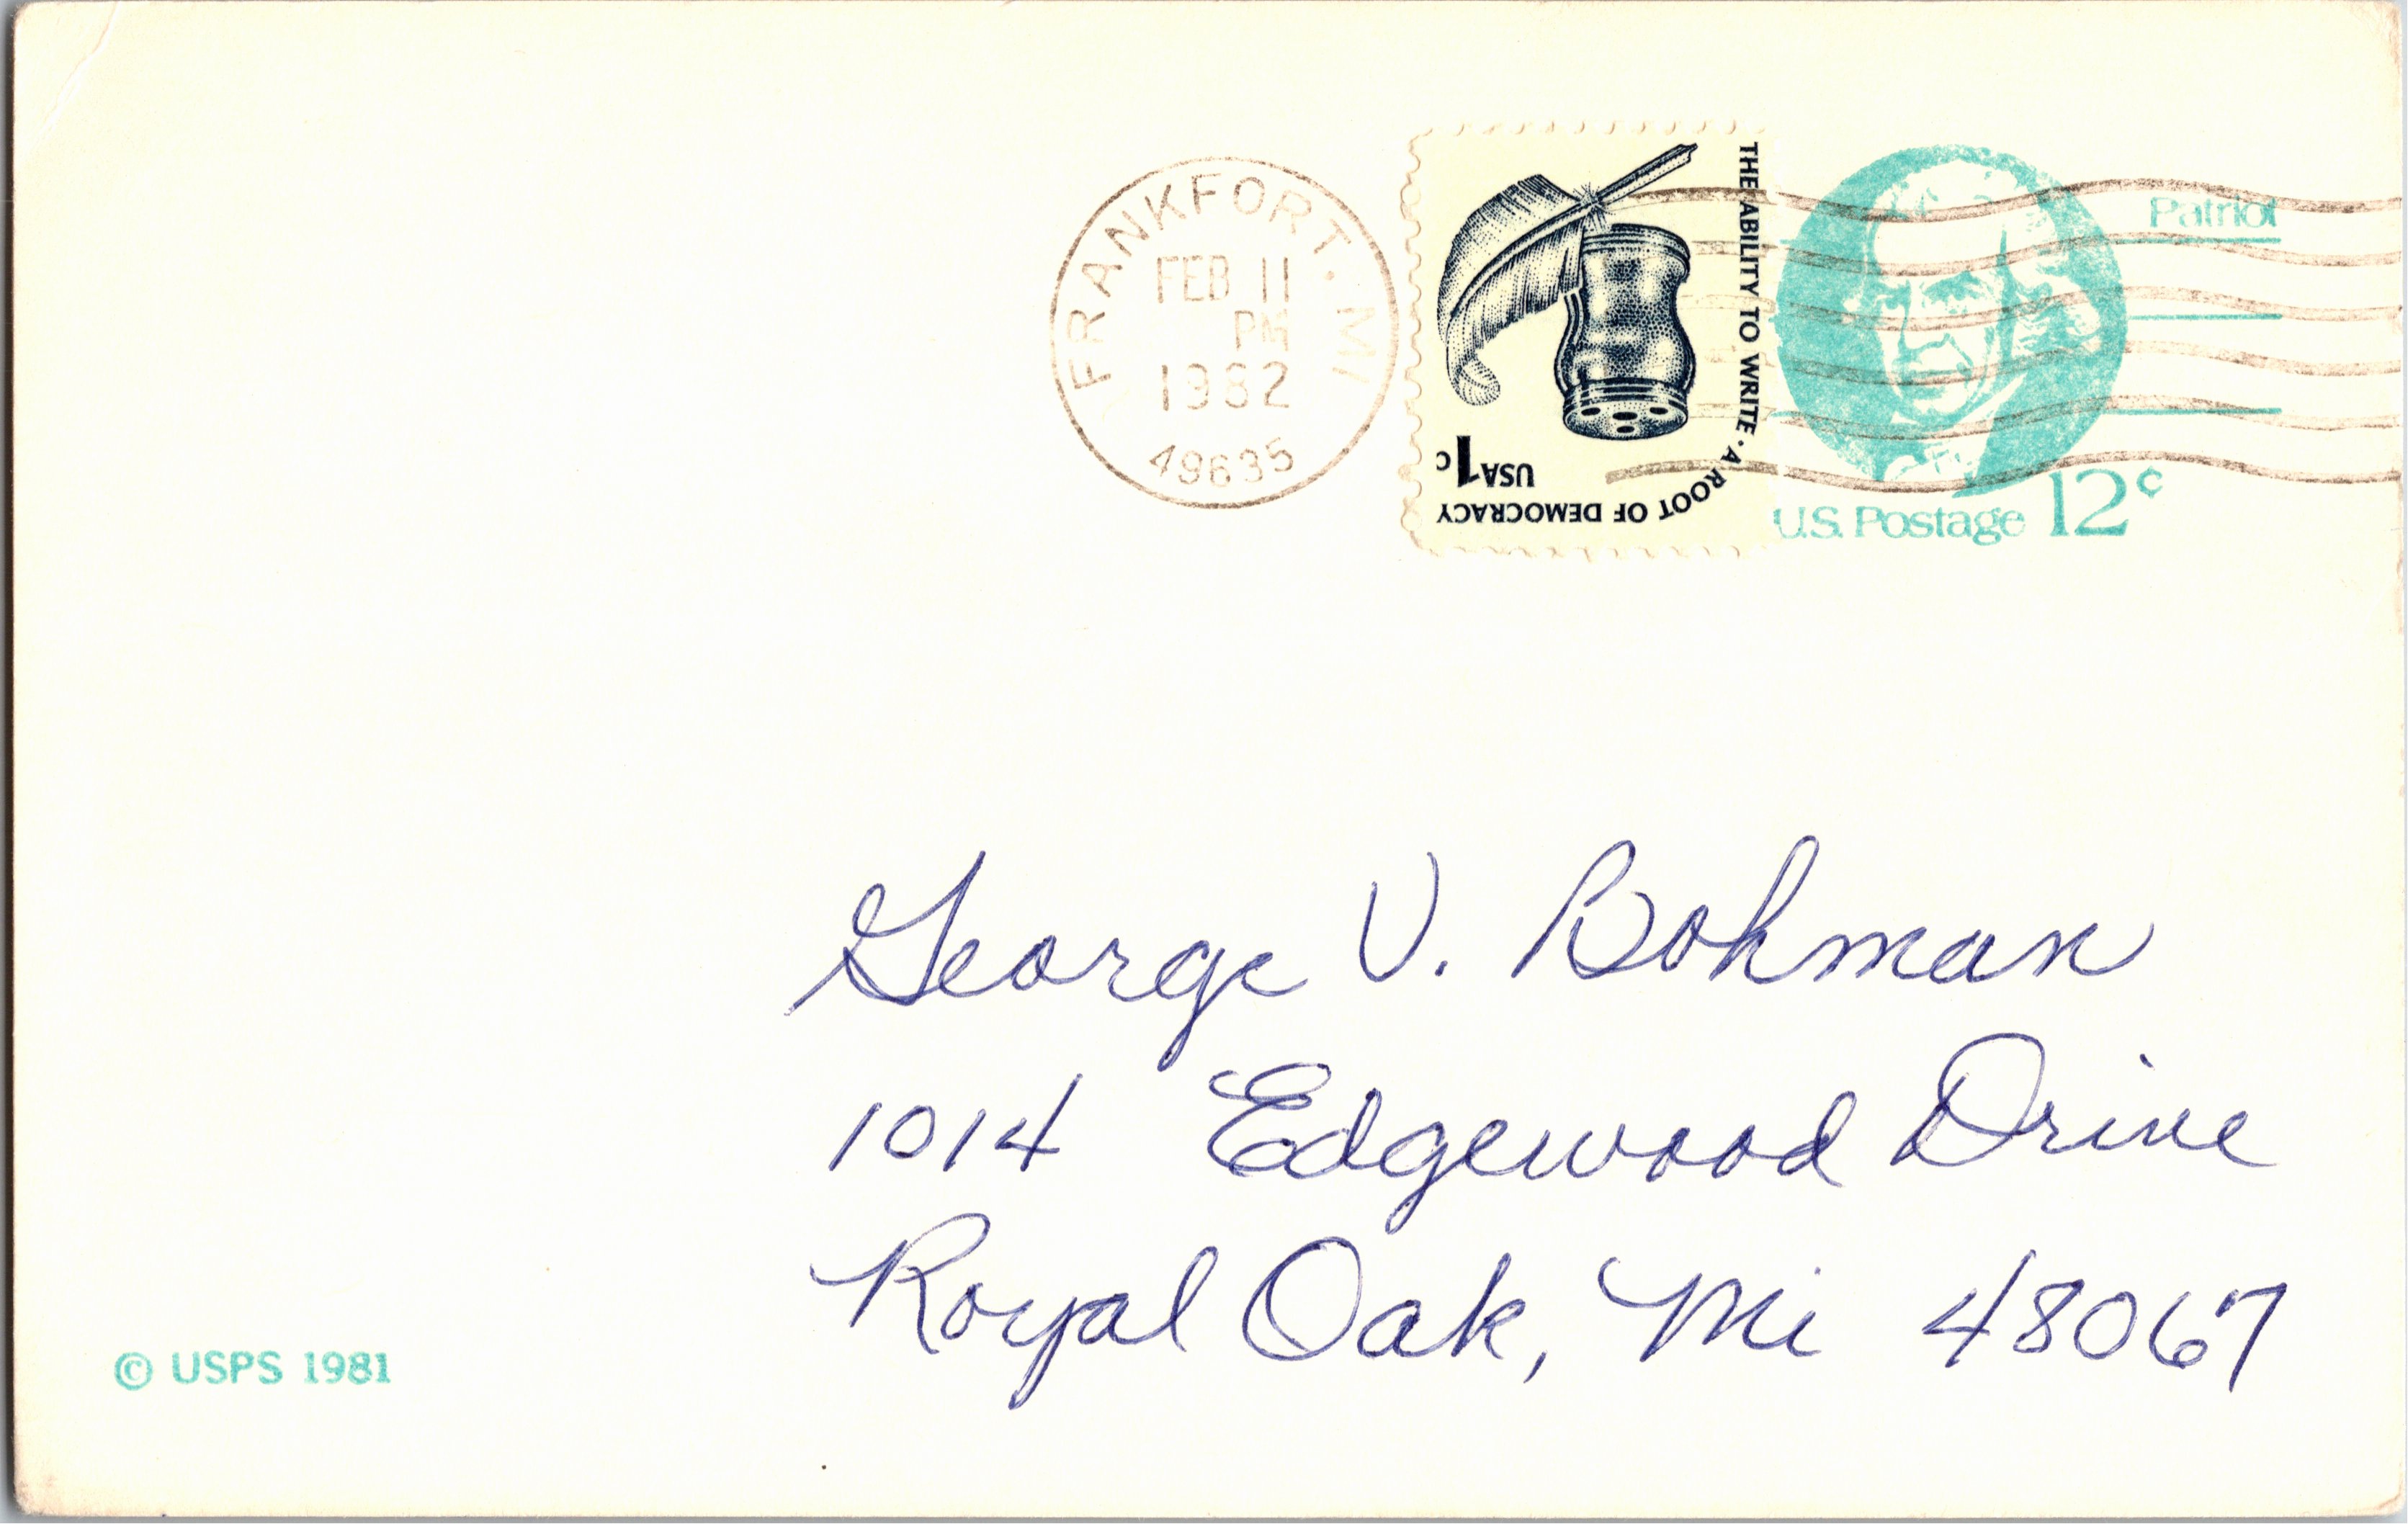 FRANKFORT. MI
FEB 11
PM
1982
49635
THE ABILITY TO WRITE · A ROOT OF DEMOCRACY
USA 1c
Patriot
U.S. Postage 12¢
George V. Bohman
1014 Edgewood Drive
Royal Oak, Mi 48067
© USPS 1981